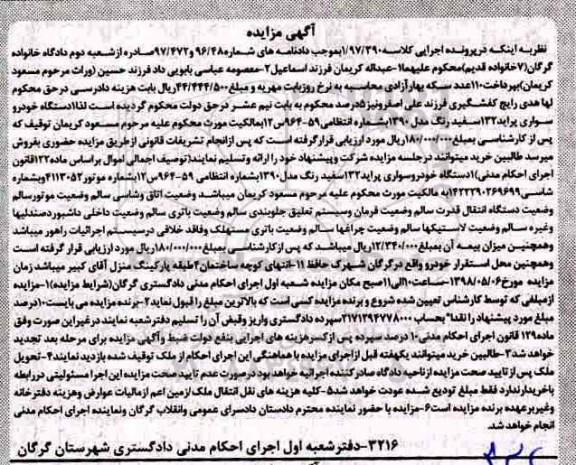 آگهی مزایده
نظر به اینکه در پرونده اجرایی کلاسه ۱/۹۷/۳۹۰بموجب دادنامه های شماره ۹۶/۴۸ و ۹۷/۴۷۲صادره از شعبه دوم دادگاه خانواده
گرگان(۷خانواده قدیم)محکوم علیهما۱-عبداله کریمان فرزند اسماعیل۲-معصومه عباسی بابویی داد فرزند حسین (وراث مرحوم مسعود
کریمان)بپرداخت۱۱۰عدد سکه بهارآزادی محاسبه به نرخ روزبابت مهریه و مبلغ۴۴/۴۴۴/۵۰۰ریال بابت هزینه دادرسی درحق محکوم
لها هدی رایج کفشگیری فرزند علی اصغرونیز۵درصد محکوم به بابت نیم عشر درحق دولت محکوم گردیده است لذا۱دستگاه خودرو
سواری پراید۱۳۲سفید رنگ مدل ۱۳۹۰بشماره انتظامی۵۹-۹۶۴س۱۲بمالکیت مورث محکوم علیه مرحوم مسعود کریمان توقیف که
پس از کارشناسی بمبلغ۱۸۰/۰۰۰/۰۰۰ریال مورد ارزیابی قرارگرفته است که پس ازانجام تشریفات قانونی ازطریق مزایده حضوری بفروش
میرسد طالبین خرید میتوانند درجلسه مزایده شرکت وپیشنهاد خود را ارائه وتسلیم نمایند(توصیف اجمالی اموال براساس ماده۱۲۲قانون
اجرای احکام مدنی)۱دستگاه خودروسواری پراید۱۳۲سفید رنگ مدل۱۳۹۰بشماره انتظامی ۵۹-۹۶۴س۱۲بشماره موتور۴۱۱۳۰۵۲وبشماره
شاسی۱۴۲۲۲۹۰۲۶۹۶۹۹به مالکیت مورث محکوم علیه مرحوم مسعود کریمان میباشد وضعیت اتاق وشاسی سالم وضعیت موتورسالم
وضعیت دستگاه انتقال قدرت سالم وضعیت فرمان وسیستم تعلیق جلوبندی سالم وضعیت باتری سالم وضعیت داخلی داشبوردصندلیها
وغیره سالم وضعیت لاستیکها سالم وضعیت چراغها سالم وضعیت باتری مستهلک وفاقد خلافی درسیستم اجرائیات راهور میباشد
وهمچنین میزان بیمه آن بمبلغ۱۲/۳۴۰/۰۰۰ریال میباشد که پس ازکارشناسی بمبلغ۱۸۰/۰۰۰/۰۰۰ریال مورد ارزیابی قرار گرفته است
وهمچنین محل استقرار خودرو واقع درگرگان شهرک حافظ ۱۱-انتهای کوچه ساختمان۲طبقه پارکینگ منزل آقای کبیر میباشد زمان
مزایده مورخ۱۳۹۸/۰۵/۰۶ساعت۱۰الی۱۱صبح مکان مزایده شعبه اول اجرای احکام مدنی دادگستری گرگان(شرایط مزایده)۱-مزایده
ازمبلغی که توسط کارشناس تعیین شده شروع و برنده مزایده کسی است که بالاترین مبلغ را قبول نماید۲-برنده مزایده می بایست۱۰درصد
مبلغ مورد پیشنهاد را نقدا" بحساب ۲۱۷۱۲۹۴۷۷۸۰۰۰سپرده دادگستری واریز وقبض آن را تسلیم دفترشعبه نمایند درغیراین صورت وفق
ماده۱۲۹ قانون اجرای احکام مدنی۱۰درصد سپرده پس ازکسرهزینه های اجرایی بنفع دولت ضبط وآگهی مزایده برای مرحله بعد تجدید
خواهد شد۳-طالبین خرید میتوانند یکهفته قبل ازاجرای مزایده با هماهنگی این اجرای احکام از ملک توقیف شده بازدید نمایند۴-تحویل
ملک پس از تایید صحت مزایده از ناحیه دادگاه صادرکننده اجرائیه خواهد بود درصورت عدم تایید صحت مزایده این اجرا مسئولیتی دررابطه
باخریدارندارد فقط مبلغ تودیع شده عودت خواهد شد۵-کلیه هزینه های نقل انتقال ملک/زمین اعم ازمالیات عوارض وهزینه دفترخانه
وغیربرعهده برنده مزایده است۶-مزایده با حضور نماینده محترم دادستان دادسرای عمومی وانقلاب گرگان ونماینده اجرای احکام مدنی
انجام خواهد شد.
۳۲۱۶-دفترشعبه اول اجرای احکام مدنی دادگستری شهرستان گرگان